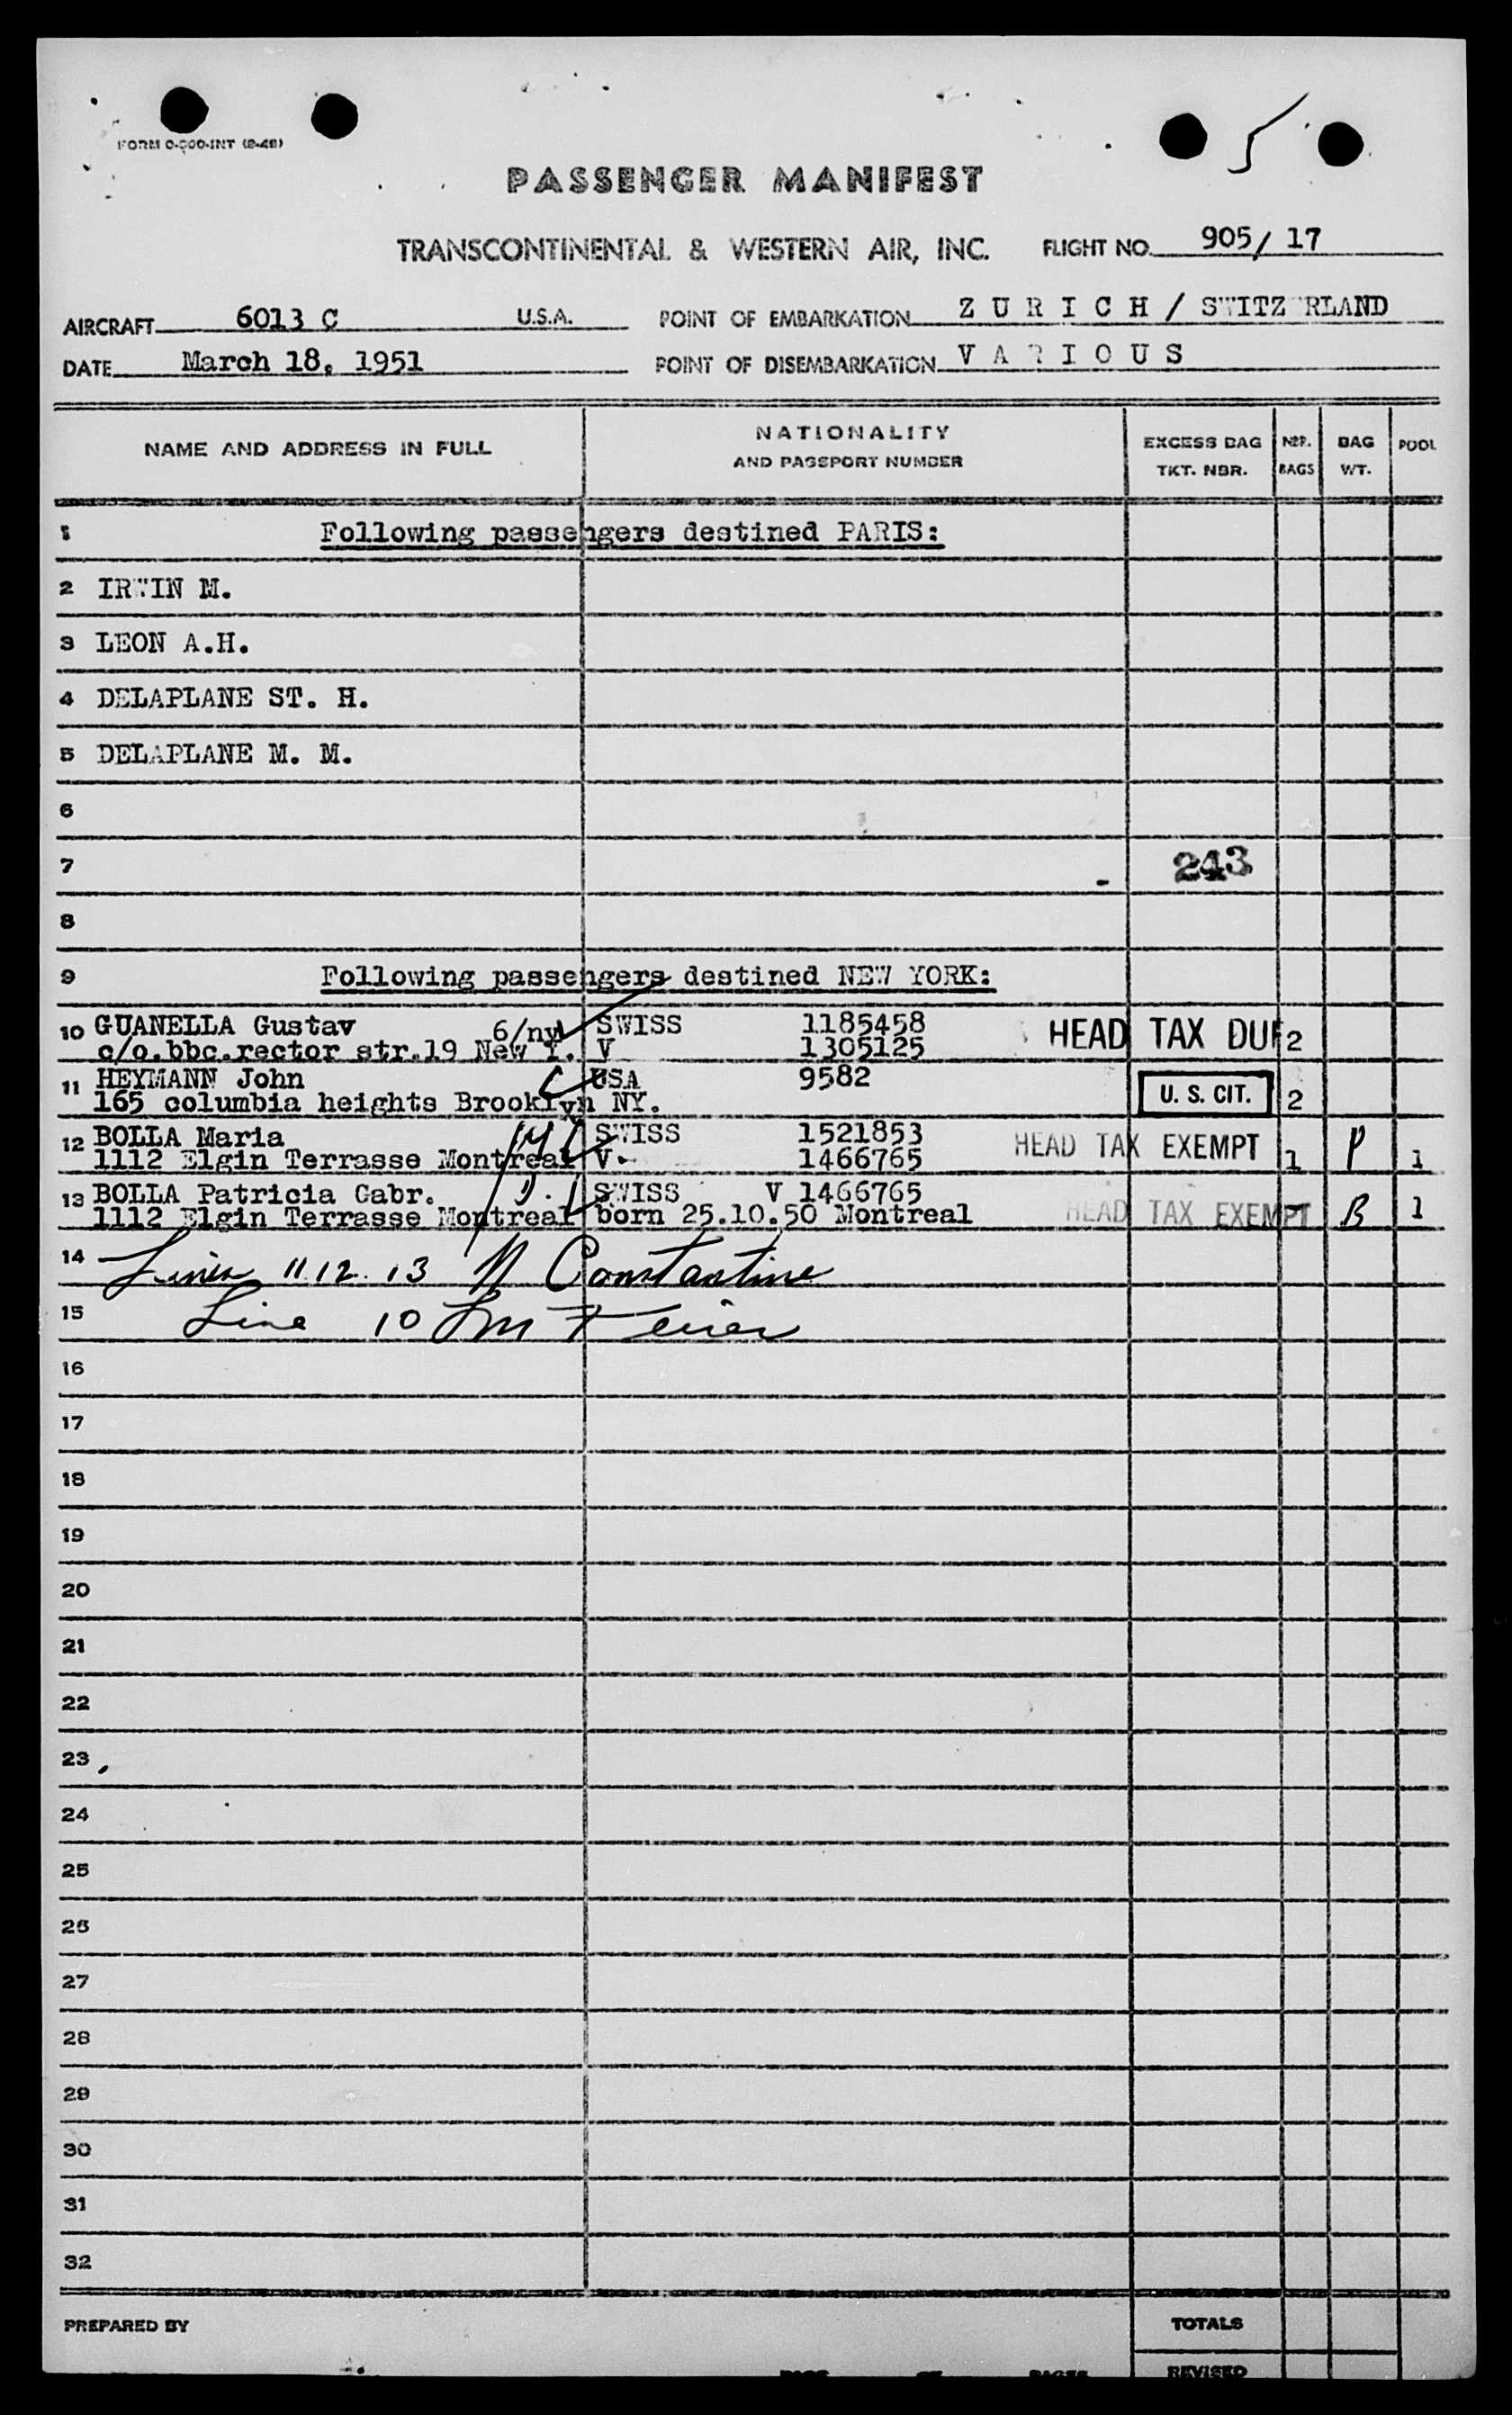 FORM O-300-INT (2-48)
5
PASSENGER MANIFEST
TRANSCONTINENTAL & WESTERN AIR, INC. FLIGHT NO. 905/ 17
AIRCRAFT 6013 C U.S.A. POINT OF EMBARKATION Z U R I C H / SWITZ RLAND
DATE March 18, 1951 POINT OF DISEMBARKATION V A R I O U S
NAME AND ADDRESS IN FULL NATIONALITY AND PASSPORT NUMBER EXCESS BAG TKT. NBR. NBR. BAGS BAG WT. POOL
1 Following passengers destined PARIS:
2 IRWIN M.
3 LEON A.H.
4 DELAPLANE ST. H.
5 DELAPLANE M. M.
6
7 243
8
9 Following passengers destined NEW YORK:
10 GUANELLA Gustav 6/ny SWISS 1185458 HEAD TAX DUE 2
c/o.bbc.rector str.19 New Y. V 1305125
11 HEYMANN John C USA 9582 U. S. CIT. 2
165 columbia heights Brooklyn NY.
12 BOLLA Maria SWISS 1521853 HEAD TAX EXEMPT 1 P 1
1112 Elgin Terrasse Montreal V. 1466765
13 BOLLA Patricia Gabr. SWISS V 1466765 HEAD TAX EXEMPT B 1
1112 Elgin Terrasse Montreal born 25.10.50 Montreal
14 Lines 11 12 13 N Constantine
15 Line 10
16
17
18
19
20
21
22
23
24
25
26
27
28
29
30
31
32
PREPARED BY TOTALS
PAGE OF PAGES REVISED